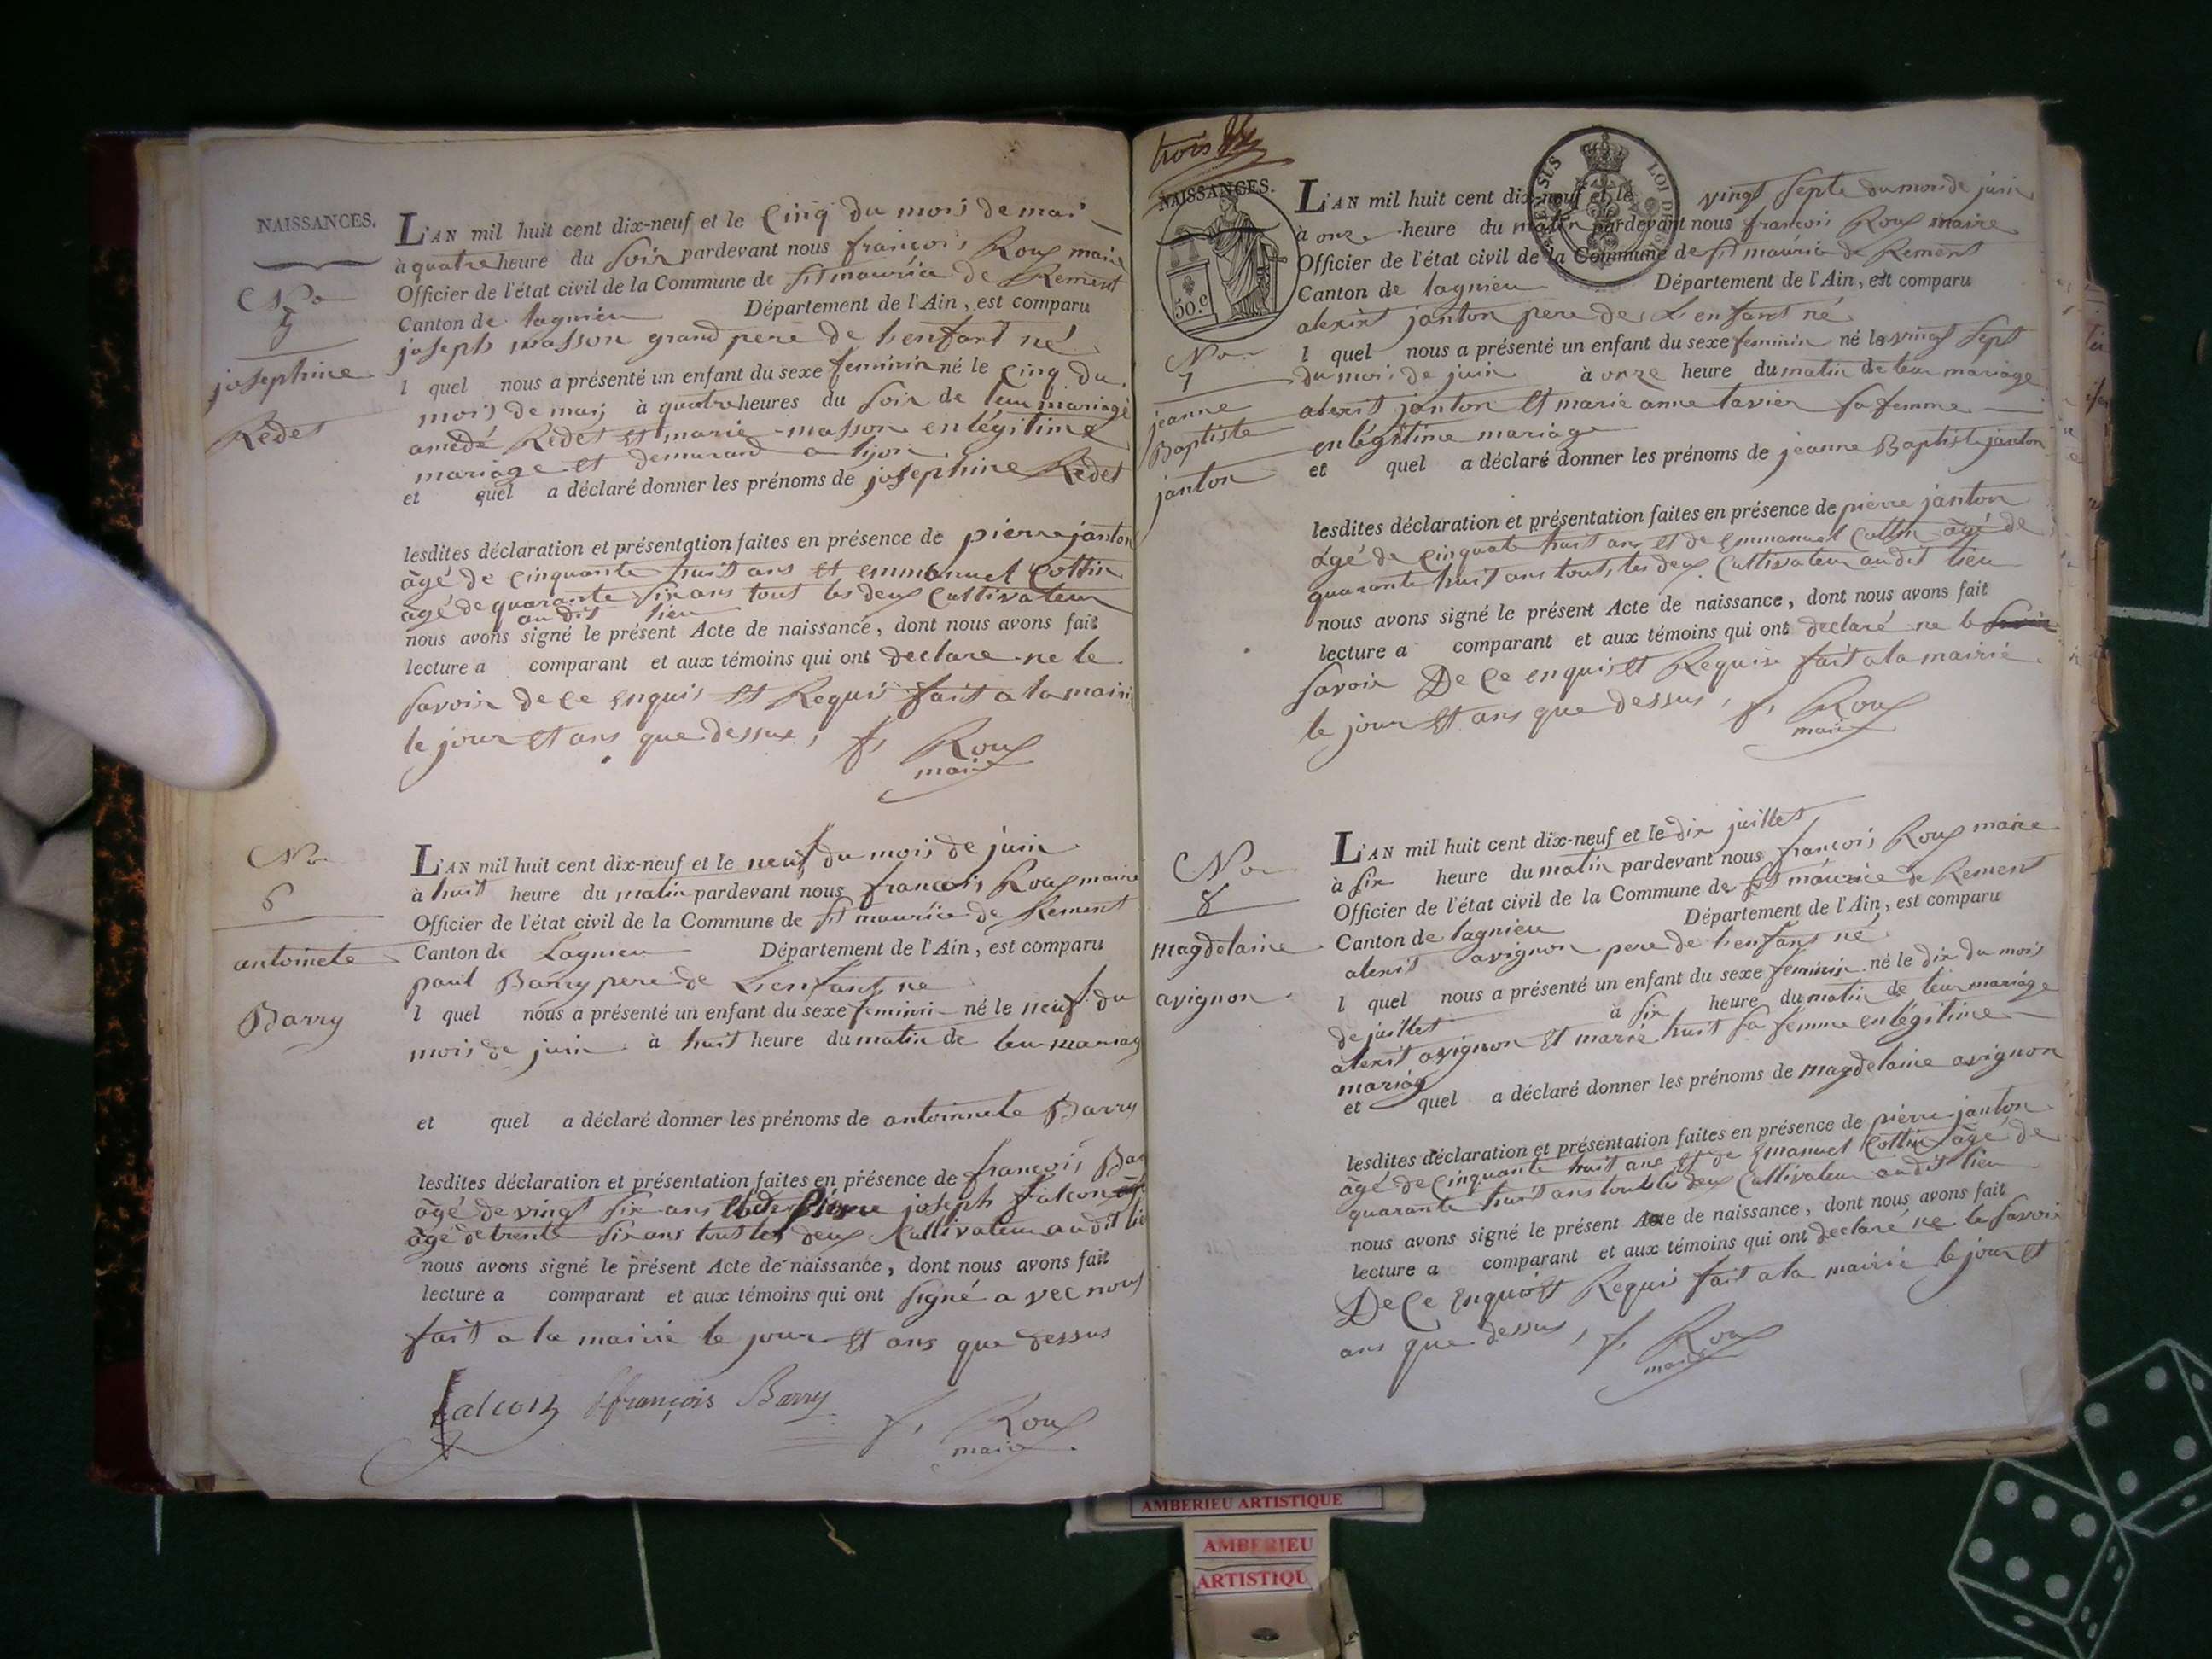 NAISSANCES.
No
5
josephine
Redet
L'AN mil huit cent dix-neuf et le cinq du mois de mai
à quatre heure du soir pardevant nous françois Roux maire
Officier de l'état civil de la Commune de St maurice de Rement
Canton de lagnieu Département de l'Ain, est comparu
joseph masson grand pere de l'enfant né
l quel nous a présenté un enfant du sexe feminin né le cinq du
mois de mai à quatre heures du soir de leur mariage
amedé Redet et marie masson en légitime
mariage et demurand a lyon
et quel a déclaré donner les prénoms de josephine Redet
lesdites déclaration et présentation faites en présence de pierre janton
âgé de cinquante huit ans et emmanuel Cottin
âgé de quarante six ans tout les deux Cultivateur
au dit lieu
nous avons signé le présent Acte de naissance, dont nous avons fait
lecture a comparant et aux témoins qui ont declare ne le
savoir de ce enquis et Requis fait a la mairi
le jour et ans que dessus, f, Roux
maire
No
6
antoinete
Barry
L'AN mil huit cent dix-neuf et le neuf du mois de juin
à huit heure du matin pardevant nous françois Roux maire
Officier de l'état civil de la Commune de St maurice de Rement
Canton de Lagnieu Département de l'Ain, est comparu
paul Barry pere de L'enfant ne
l quel nous a présenté un enfant du sexe feminin né le neuf du
mois de juin à huit heure du matin de leur mariag
et quel a déclaré donner les prénoms de antoinnete Barry
lesdites déclaration et présentation faites en présence de françois Bar
âgé de vingt six ans joseph falcon
âgé de trente six ans tout les deux Cultivateur au dit lie
nous avons signé le présent Acte de naissance, dont nous avons fait
lecture a comparant et aux témoins qui ont signé a vec nous
fait a la mairie le jour et ans que dessus
falcon françois Barry f, Roux
maire
trois
NAISSANCES.
50.c
LOI
No
7
jeanne
Baptiste
janton
L'AN mil huit cent dix-neuf et le vingt septe du mois de juin
à onze heure du matin pardevant nous françois Roux maire
Officier de l'état civil de la Commune de St maurice de Rement
Canton de lagnieu Département de l'Ain, est comparu
alexixt janton pere de L'enfant né
l quel nous a présenté un enfant du sexe feminin né le vingt sept
du mois de juin à onze heure du matin de leur mariage
alexit janton et marie anne tavier sa femme
en légitime mariage
et quel a déclaré donner les prénoms de jeanne Baptiste janton
lesdites déclaration et présentation faites en présence de pierre janton
âgé de cinquate huit ans et de Emmanuel Cottin âgé de
quarante huit ans tout les deux Cultivateur au dit lieu
nous avons signé le présent Acte de naissance, dont nous avons fait
lecture a comparant et aux témoins qui ont declaré ne le savoir
savoir De Ce enquis et Requise fait a la mairie
le jour et ans que dessus, f, Roux
maire
No
8
magdelaine
avignon
L'AN mil huit cent dix-neuf et le dix juillet
à six heure du matin pardevant nous françois Roux maire
Officier de l'état civil de la Commune de St maurice de Rement
Canton de lagnieu Département de l'Ain, est comparu
alexit avignon pere de l'enfant né
l quel nous a présenté un enfant du sexe feminin né le dix du mois
de juillet à six heure du matin de leur mariage
alexit avignon et marie huit sa femme en légitime
mariag
et quel a déclaré donner les prénoms de magdelaine avignon
lesdites déclaration et présentation faites en présence de pierre janton
âgé de cinquante huit ans et de Emanuel Cottin âgé de
quarante huit ans tout les deux Cultivateur au dit lieu
nous avons signé le présent Acte de naissance, dont nous avons fait
lecture a comparant et aux témoins qui ont declaré ne le savoir
De Ce enquis et Requis fait a la mairie le jour et
ans que dessus, f, Roux
maire
AMBERIEU ARTISTIQUE
AMBERIEU
ARTISTIQU